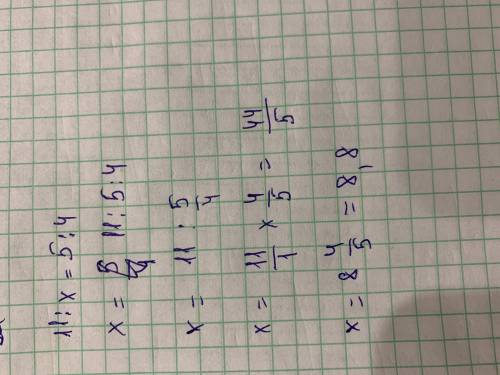 11 : x = 5 : 4
x = 11 : 5 : 4
x = 11 : 5/4
x = 11/1 × 4/5 = 44/5
x = 8 4/5 = 8,8